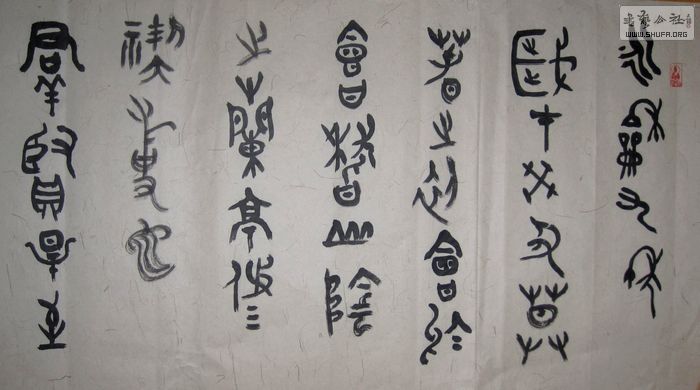 永和九年
歲在癸丑暮
春之初會於
會稽山陰
之蘭亭修
禊事也
群賢畢至
书艺公社
WWW.SHUFA.ORG